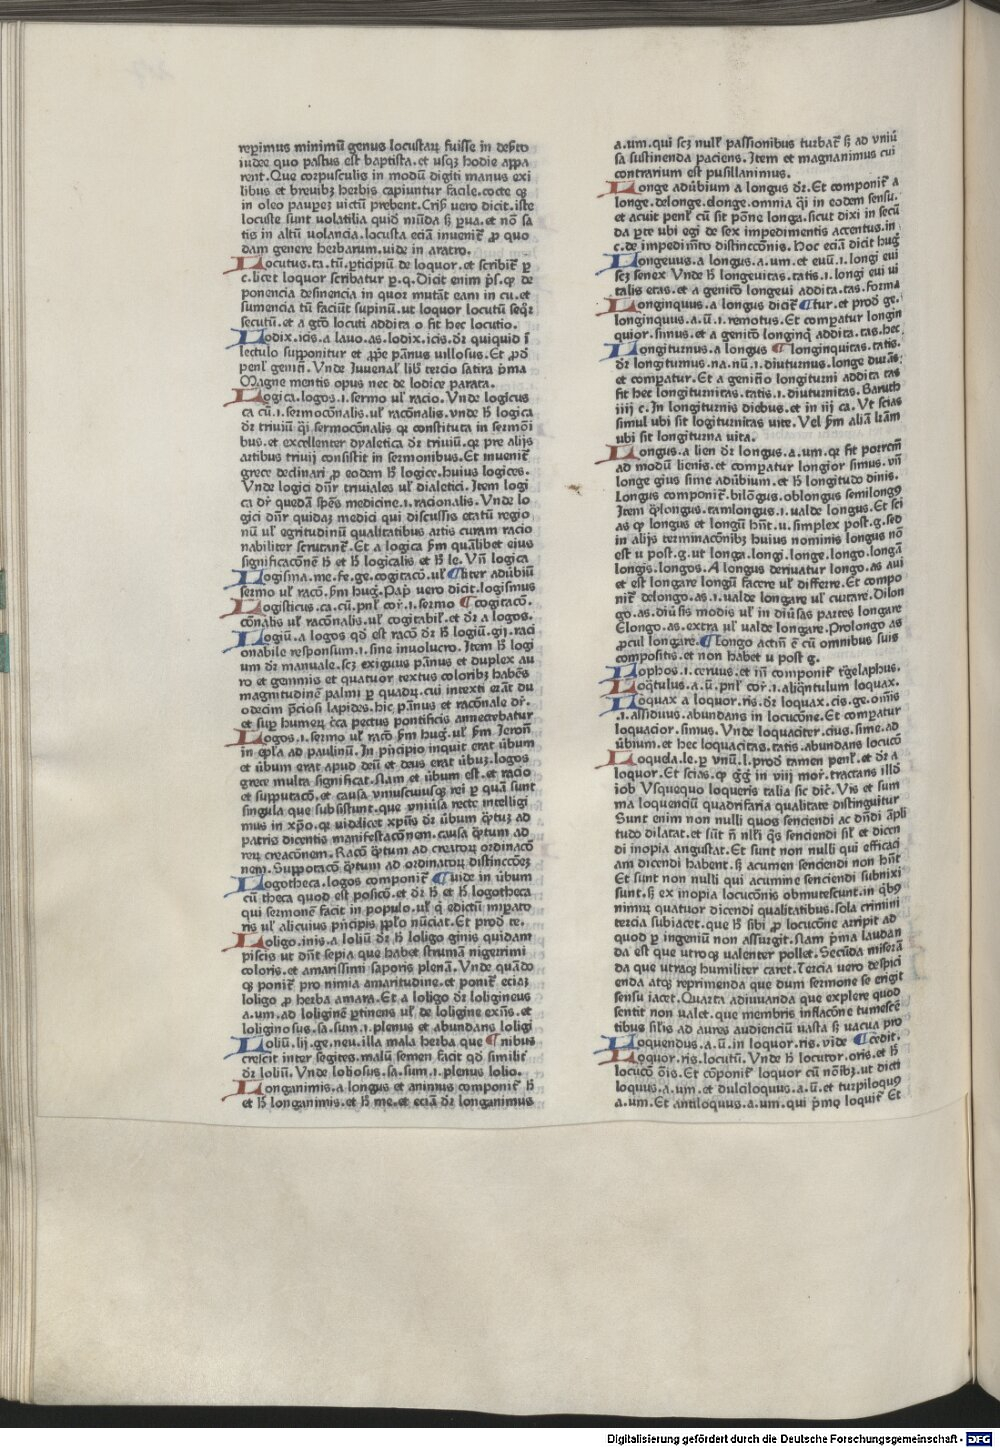 reperimus minimū genus locustarꝝ fuisse in deẜto
iudee quo pastus est baptista.et usqꝫ hodie appa
rent.Que corpusculis in modū digiti manus exi
libus et brevibꝫ herbis capiuntur facile.cocte qꝫ
in oleo pauꝑeꝫ victū prebent.Crisͥ vero dicit.iste
locuste sunt uolatilia quid mūda sꝫ ꝑua.et nō sa
tis in altū uolancia.locusta eciā invenit̄ ꝓ quo
dam genere herbarum.uide in aratro.
Locutus.ta.tū.ꝑticipiū de loquor.et scribit̄ ꝑ
c.licet loquor scribatur ꝑ.q.Dicit enim p̄s.ꝙ de
ponencia desinencia in quor mutāt eam in cu.et
sumencia tū faciūt supinū.ut loquor locutū seqͦꝛ
secutū.et a gtō locuti addita o fit hec locutio.
Lodix.icis.a lauo.as.lodix.icis.dꝛ quiquid ī
lectulo supponitur et ꝓpͥe pānus uillosus.Et ꝓd̄
penl̄ genitī.Vnde Juuenal̄ lib̄ tercio satira p̄ma
Magne mentis opus nec de lodice parata.
Logica.logos.i.sermo ul̄ racio.Vnde logicus
ca cū.i.sermocōnalis.ul̄ racōnalis.vnde h̄ logica
dꝛ triuiū qͥ sermocōnalis qꝫ constituta in sermoī
bus.et excellenter dyaletica dꝛ triuiū.qꝫ pre alijs
artibus triuij consistit in sermonibus.Et inuenit̄
grece declinari ꝓ eodem h̄ logice.huius logices.
Vnde logici dn̄r triuiales ul̄ dialetici.Item logi
ca dr̄ quedā spēs medicine.i.racionalis.Vnde lo
gici dn̄r quidaꝫ medici qui discussis etatū regio
nū ul̄ egritudinū qualitatibus artis curam racio
nabiliter scrutant̄.Et a logica p̄m quālibet eius
significacōnē h̄ et h̄ logicalis et h̄ le.Vn̄ logica
Logisma.me.fe.ge.cogitacō.ul̄ ¶liter adubiū
sermo ul̄ racō.p̄m huḡ.Pap̄ vero dicit.logismus
Logisticus.ca.cū.pnl̄ cor̄.i.sermo ¶ cogitacō.
cōnalis ul̄ racōnalis.ul̄ cogitabil̄.et dꝛ a logos.
Logiū.a logos qd̄ est racō dꝛ h̄ logiū.gij.raci
onabile responsum.i.sine involucro.Item h̄ logi
um dꝛ manuale.scꝫ exiguus pānus et duplex au
ro et gemmis et quatuor textus coloribꝫ habēs
magnitudinē palmi ꝑ quadꝝ.cui intexti erāt du
odecim p̄ciosi lapides.hic pānus et racōnale dr̄.
et suꝑ humerꝝ c̄ca pectus pontificis annectebatur
Logos.i.sermo ul̄ racō p̄m huḡ.ul̄ p̄m Jeron̄
in epl̄a ad paulinū.In pͥncipio inquit erat ūbum
et ūbum erat apud deū et deus erat ūbuꝫ.logos
grece multa significat.Nam et ūbum est.et racio
et supputacō.et causa vniuscuiusqꝫ rei ꝑ quā sunt
singula que subsistunt.que vniūsa recte intelligi
mus in xp̄o.qꝫ uidelicet xpūs dꝛ ūbum qͣtuꝫ ad
patris dicentis manifestacōnem.causa qͣtum ad
rerꝝ creacōnem.Racō qͣtum ad creatorꝝ ordinacō
nem.Supputacō qͣtum ad ordinatorꝝ distinccōeꝫ
Logotheca.logos componit̄ ¶uide in ūbum
cū theca quod est posicō.et dꝛ h̄ et h̄ logotheca
qui sermonē facit in populo.ul̄ qͥ edictū imꝑato
ris ul̄ alicuius pͥncipis pp̄lo nūciat.Et prod̄ te.
Loligo.inis.a loliū dꝛ h̄ loligo ginis quidam
piscis ut dn̄t sepia que habet strumā nigerrimi
coloris.et amarissimi saporis plenā.Vnde quādo
qꝫ ponit̄ pro nimia amaritudine.et ponit̄ eciaꝫ
loligo ꝓ herba amara.Et a loligo dꝛ loligineus
a.um.ad loliginē ꝑtinens ul̄ de loligine exn̄s.et
loliginosus.sa.sum.i.plenus et abundans loligi
Loliū.lij.ge.neu.illa mala herba que ¶ nibus
crescit inter segites.malū semen facit qd̄ similit̄
dꝛ loliū.Vnde loliosus.sa.sum.i.plenus lolio.
Longanimis.a longus et animus componit̄ h̄
et h̄ longanimis.et h̄ me.et eciā dꝛ longanimus
a.um.qui scꝫ null̄ passionibus turbat̄ sꝫ ad vniū
sa sustinenda paciens.Item et magnanimus cui
contrarium est pusillanimus.
Longe adūbium a longus dꝛ.Et componit̄ a
longe.delonge.donge.omnia qͥ in eodem sensu.
et acuit penl̄ cū sit pōne longa.sicut dixi in secū
da ꝑte ubi egi de sex impedimentis accentus.in
c.de impedimēto distinccōnis.Hoc eciā dicit huḡ
Longeuus.a longus.a.um.et euū.i.longi eui
scꝫ senex Vnde h̄ longeuitas.tatis.i.longi eui ui
talis etas.et a genitō longeui addita.tas.forma
Longinquus.a longus dicit̄ ¶tur.et prod̄ ge.
longinquus.a.ū.i.remotus.Et comꝑatur longin
quior.simus.et a genitō longinqͥ addita.tas.hec
Longiturnus.a longus ¶ longinquitas.tatis.
dꝛ longiturnus.na.nū.i.diuturnus.longe durās.
et comꝑatur.Et a genitīo longiturni addita tas
fit hec longiturnitas.tatis.i.diuturnitas.Baruch
iiij c.In longiturnis diebus.et in iij ca.Vt scias
simul ubi sit logiturnitas uite.Vel p̄m aliā lr̄am
ubi sit longiturna uita.
Longus.a lien dꝛ longus.a.um.qꝫ fit porrectū
ad modū lienis.et comꝑatur longior simus.vn̄
longe gius sime adūbium.et h̄ longitudo dinis.
Longus componit̄.bilōgus.oblongus semilongꝰ
Item qͣlongus.tamlongus.i.ualde longus.Et sci
as ꝙ longus et longū hn̄t.u.simplex post.g.sed
in alijs terminacōnibꝫ huius nominis longus nō
est u post.g.ut longa.longi.longe.longo.longā
longis.longos.A longus deriuatur longo.as aui
et est longare longū facere ul̄ differre.Et compo
nit̄ delongo.as.i.ualde longare ul̄ curtare.Dilon
go.as.diūsis modis ul̄ in diūsas partes longare
Elongo.as.extra ul̄ ualde longare.Prolongo as
ꝓcul longare.¶Longo actīū ē cū omnibus suis
compositis.et non habet u post g.
Lophos.i.ceruus.et in̄ componit̄ tͣgelaphus.
Loqͣtulus.a.ū.pnl̄ cor̄.i.aliqͣntulum loquax.
Loquax a loquor.ris.dꝛ loquax.cis.ge.om̄is
.i.assiduus.abundans in locucōne.Et comꝑatur
loquacior.simus.Vnde loquaciter.cius.sime.ad
ūbium.et hec loquacitas.tatis.abundans locucō
Loquela.le.ꝑ vnū.l.prod̄ tamen penl̄.et dꝛ a
loquor.Et scias.ꝙ gͥḡ in viij mor̄.tractans illd̄
iob Vsquequo loqueris talia sic dic̄.Vis et sum
ma loquenciū quadrifaria qualitate distinguitur
Sunt enim non nulli quos senciendi ac dn̄di āpli
tudo dilatat.et sūt n̄ nl̄li qͦs senciendi sil̄ et dicen
di inopia angustat.Et sunt non nulli qui efficaci
am dicendi habent.sꝫ acumen senciendi non hn̄t
Et sunt non nulli qui acumine senciendi subnixi
sunt.sꝫ ex inopia locucōnis obmutescunt.in qͥbꝰ
nimꝝ quatuor dicendi qualitatibus.sola crimini
tercia subiacet.que h̄ sibi ꝓ locucōne arripit ad
quod ꝑ ingeniū non assurgit.Nam p̄ma laudan
da est que utroqꝫ ualenter pollet.Secūda miserā
da que utraqꝫ humiliter caret.Tercia uero despici
enda atqꝫ reprimenda que dum sermone se erigit
sensu iacet.Quarta adiuuanda que explere quod
sentit non ualet.que membris inflacōne tumescē
tibus silis ad aures audienciū uasta sꝫ uacua pro
Loquendus.a.ū.in loquor.ris.vide ¶cedit.
Loquor.ris.locutū.Vnde h̄ locutor.oris.et h̄
locucō ōis.Et cōponit̄ loquor cū nōibꝫ.ut dicti
loquus.a.um.et dulciloquus.a.ū.et turpiloquꝰ
a.um.Et antiloquus.a.um.qui p̄mꝰ loquit̄ Et
Digitalisierung gefördert durch die Deutsche Forschungsgemeinschaft - DFG